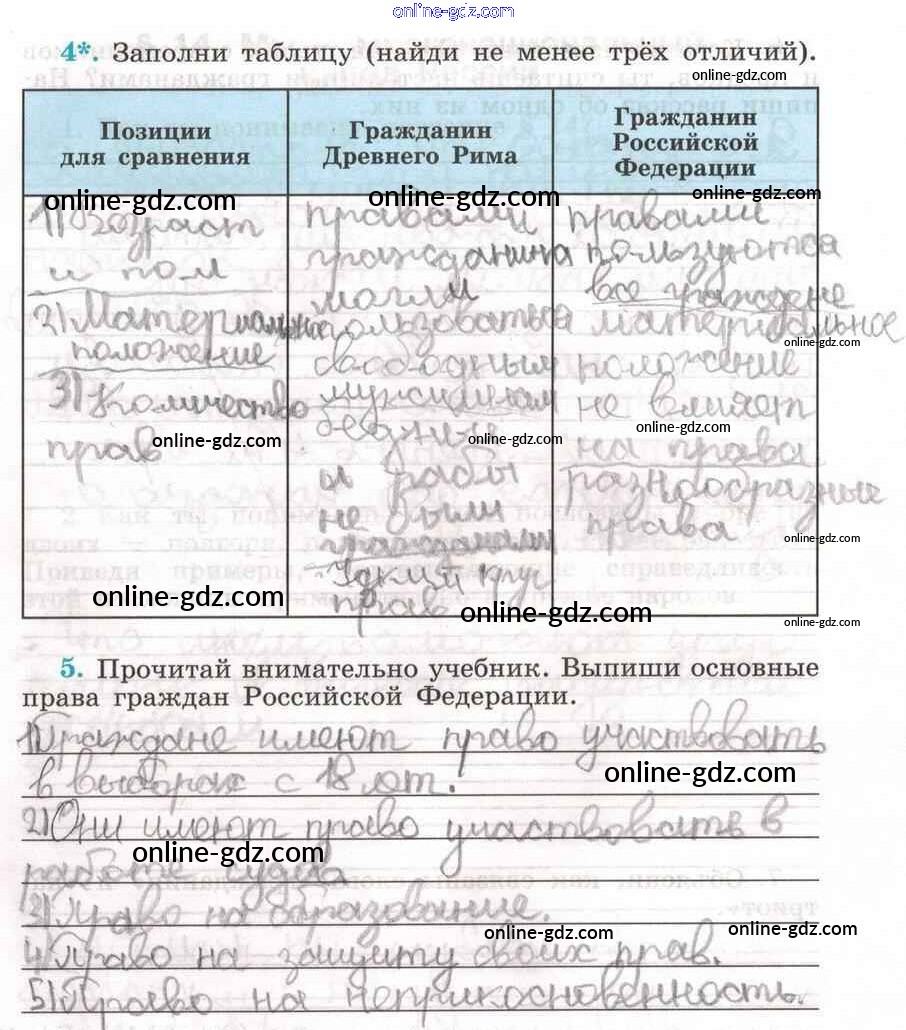 online-gdz.com
4*. Заполни таблицу (найди не менее трёх отличий).
online-gdz.com
Позиции
для сравнения
Гражданин
Древнего Рима
Гражданин
Российской
Федерации
online-gdz.com
online-gdz.com
online-gdz.com
1) Возраст
и пол
2) Материальное
положение
3) Количество
прав
online-gdz.com
правами
гражданина
могли
пользоваться
свободным
мужчинам
бедный
online-gdz.com
и рабы
не были
гражданами
Узкий круг
прав
правами
пользуются
все граждане
материальное
online-gdz.com
положение
не влияет
online-gdz.com
на права
разнообразные
права
online-gdz.com
online-gdz.com
online-gdz.com
online-gdz.com
5. Прочитай внимательно учебник. Выпиши основные
права граждан Российской Федерации.
1) Граждане имеют право участвовать
в выборах с 18 лет.
online-gdz.com
2) Они имеют право участвовать в
online-gdz.com
работе суда
3) Право на образование.
online-gdz.com
online-gdz.com
4) Право на защиту своих прав.
5) Право на неприкосновенность.